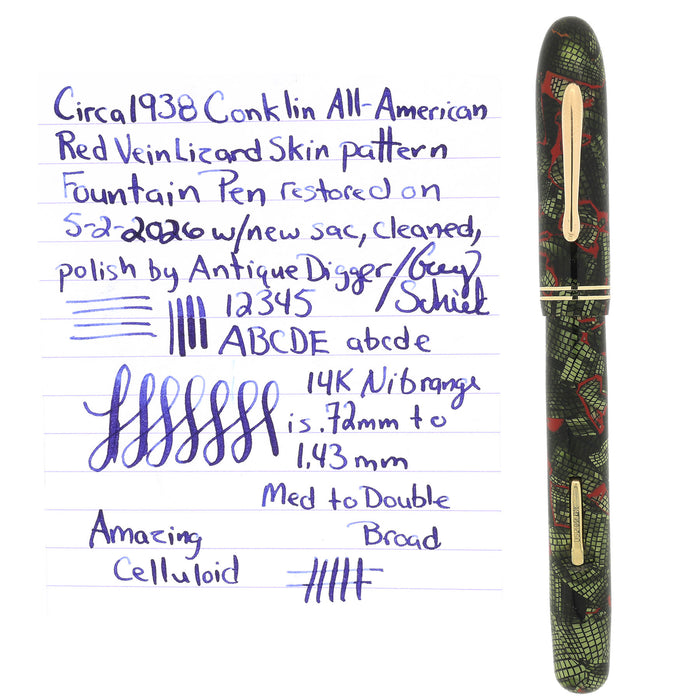 Circa 1938 Conklin All-American
Red Vein Lizard Skin pattern
Fountain Pen restored on
5-2-2026 w/new sac, cleaned,
polish by Antique Digger/
12345
ABCDE abcde
14K Nib range
is .72mm to
1.43mm
Med to Double
Broad
Amazing
Celluloid